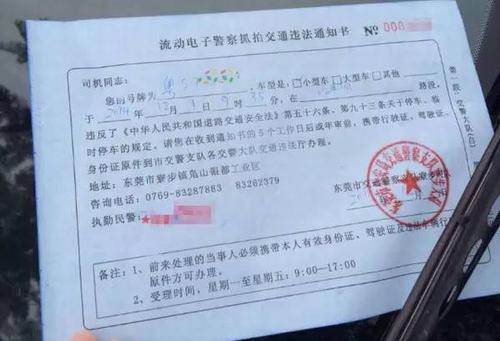 流动电子警察抓拍交通违法通知书 № 000
司机同志：
您的号牌为 粤S 车型是：□小型车 □大型车 □其他
于 2014 年 12 月 1 日 9 时 35 分，在 路段，
违反了《中华人民共和国道路交通安全法》第五十六条、第九十三条关于停车、临
时停车的规定。请您在收到通知书的5个工作日后或年审前，携带行驶证、驾驶证、
身份证原件到市交警支队各交警大队交通违法厅办理。
地址：东莞市寮步镇凫山银都工业区
咨询电话：0769-83287883 83262379
东莞市交通警察
执勤民警：
备注：1、前来处理的当事人必须携带本人有效身份证、驾驶证及违法车辆行
原件方可办理。
2、受理时间，星期一至星期五：9:00—17:00
第一联：交警大队(白)